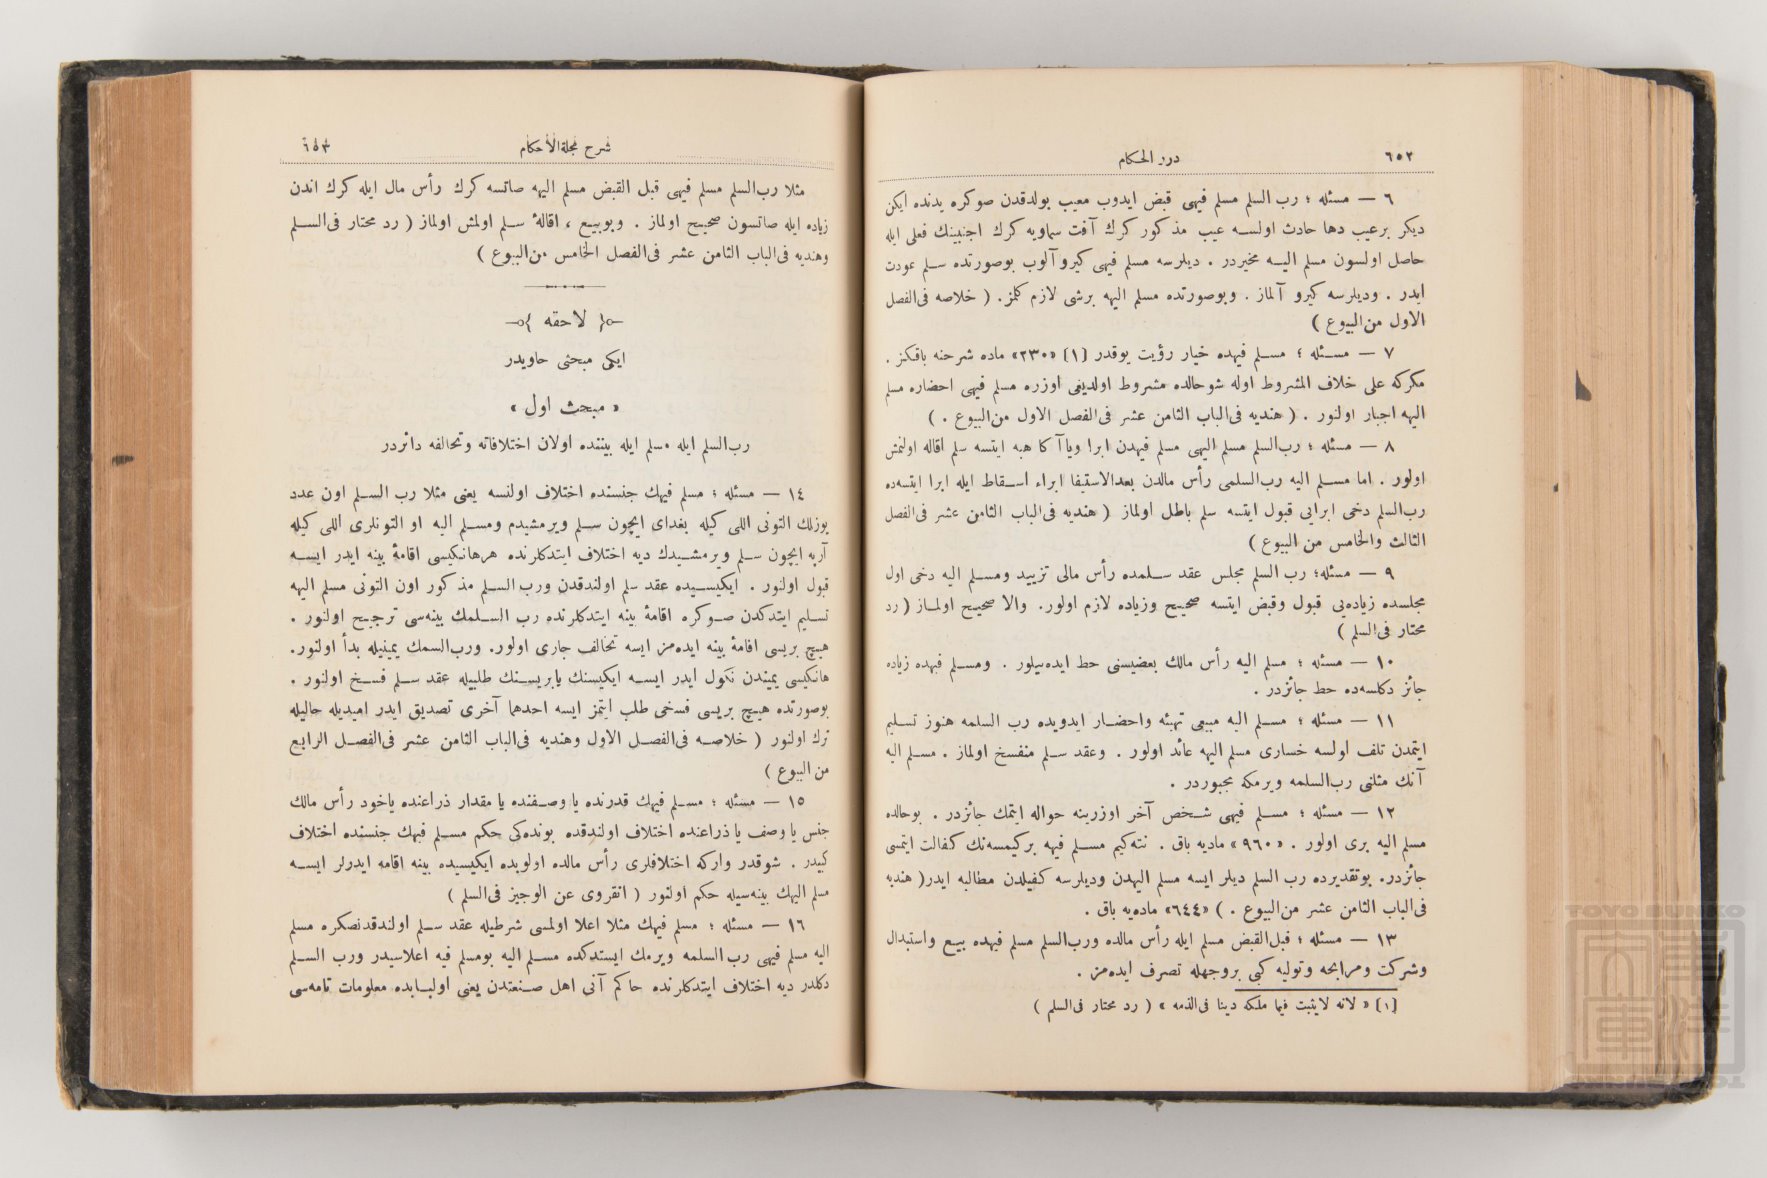 ٦٥٢
درر الحكام
٦ — مسئله ؛ رب السلم مسلم فيهى قبض ايدوب معيب بولدقدن صوكره يدنده ايكن
ديكر برعيب دها حادث اولسه عيب مذكور كرك آفت سماويه كرك اجنبينك فعلى ايله
حاصل اولسون مسلم اليه مخيردر . ديلرسه مسلم فيهى كيرو آلوب بوصورتده سلم عودت
ايدر . وديلرسه كيرو آلماز . وبوصورتده مسلم اليهه برشى لازم كلمز. ( خلاصه فى‌الفصل
الاول من‌البيوع )
٧ — مسئله ؛ مسلم فيهده خيار رؤيت يوقدر [١] «٢٣٠» ماده شرحنه باقكز .
مكركه على خلاف المشروط اوله شوحالده مشروط اولديغى اوزره مسلم فيهى احضاره مسلم
اليه اجبار اولنور . ( هنديه فى‌الباب الثامن عشر فى‌الفصل الاول من‌البيوع . )
٨ — مسئله ؛ رب‌السلم مسلم اليهى مسلم فيهدن ابرا ويا آكا هبه ايتسه سلم اقاله اولنمش
اولور . اما مسلم اليه رب‌السلمى رأس مالدن بعدالاستيفا ابراء اسقاط ايله ابرا ايتسه‌ده
رب‌السلم دخى ابرايى قبول ايتسه سلم باطل اولماز ( هنديه فى‌الباب الثامن عشر فى‌الفصل
الثالث والخامس من البيوع )
٩ — مسئله؛ رب السلم مجلس عقد سلمده رأس مالى تزييد ومسلم اليه دخى اول
مجلسده زياده‌يى قبول وقبض ايتسه صحيح وزياده لازم اولور. والا صحيح اولماز ( رد
محتار فى‌السلم )
١٠ — مسئله ؛ مسلم اليه رأس مالك بعضيسنى حط ايده‌بيلور . ومسلم فيهده زياده
جائز دكلسه‌ده حط جائزدر .
١١ — مسئله ؛ مسلم اليه مبيعى تهيئه واحضار ايدوبده رب السلمه هنوز تسليم
ايتمدن تلف اولسه خسارى مسلم اليهه عائد اولور . وعقد سلم منفسخ اولماز . مسلم اليه
آنك مثلنى رب‌السلمه ويرمكه مجبوردر .
١٢ — مسئله ؛ مسلم فيهى شخص آخر اوزرينه حواله ايتمك جائزدر . بوحالده
مسلم اليه برى اولور . «٩٦٠» ماديه باق . نته‌كيم مسلم فيهه بركيمسه‌نك كفالت ايتمسى
جائزدر. بوتقديرده رب السلم ديلر ايسه مسلم اليهدن وديلرسه كفيلدن مطالبه ايدر( هنديه
فى‌الباب الثامن عشر من‌البيوع . ) «٦٤٤» ماده‌يه باق .
١٣ — مسئله ؛ قبل‌القبض مسلم ايله رأس مالده ورب‌السلم مسلم فيهده بيع واستبدال
وشركت ومرابحه وتوليه كبى بروجهله تصرف ايده‌مز .
[١] « لانه لايثبت فيما ملكه دينا فى‌الذمه » ( رد محتار فى‌السلم )
شرح مجلة‌الأحكام
٦٥٣
مثلا رب‌السلم مسلم فيهى قبل القبض مسلم اليهه صاتسه كرك رأس مال ايله كرك اندن
زياده ايله صاتسون صحيح اولماز . وبوبيع ، اقالهٔ سلم اولمش اولماز ( رد محتار فى‌السلم
وهنديه فى‌الباب الثامن عشر فى‌الفصل الخامس من‌البيوع )
لاحقه
ايكى مبحثى حاويدر
« مبحث اول »
رب‌السلم ايله مسلم ايله بيننده اولان اختلافاته وتحالفه دائردر
١٤ — مسئله ؛ مسلم فيهك جنسنده اختلاف اولنسه يعنى مثلا رب السلم اون عدد
يوزلك التونى اللى كيله بغداى ايچون سلم ويرمشيدم ومسلم اليه او التونلرى اللى كيله
آرپه ايچون سلم ويرمشيدك ديه اختلاف ايتدكلرنده هرهانكيسى اقامهٔ بينه ايدر ايسه
قبول اولنور . ايكيسيده عقد سلم اولندقدن ورب السلم مذكور اون التونى مسلم اليهه
تسليم ايتدكدن صوكره اقامهٔ بينه ايتدكلرنده رب السلمك بينه‌سى ترجيح اولنور .
هيچ بريسى اقامهٔ بينه ايده‌مز ايسه تحالف جارى اولور. ورب‌السمك يمينيله بدأ اولنور.
هانكيسى يمينده‌ن نكول ايدر ايسه ايكيسنك يابريسنك طلبيله عقد سلم فسخ اولنور .
بوصورتده هيچ بريسى فسخى طلب ايتمز ايسه احدهما آخرى تصديق ايدر اميديله حاليله
ترك اولنور ( خلاصه فى‌الفصل الاول وهنديه فى‌الباب الثامن عشر فى‌الفصل الرابع
من البيوع )
١٥ — مسئله ؛ مسلم فيهك قدرنده يا وصفنده يا مقدار ذراعنده ياخود رأس مالك
جنس يا وصف يا ذراعنده اختلاف اولندقده بونده‌كى حكم مسلم فيهك جنسنده اختلاف
كبيدر . شوقدر واركه اختلافلرى رأس مالده اولوبده ايكيسيده بينه اقامه ايدرلر ايسه
مسلم اليهك بينه‌سيله حكم اولنور ( انقروى عن الوجيز فى‌السلم )
١٦ — مسئله ؛ مسلم فيهك مثلا اعلا اولمسى شرطيله عقد سلم اولندقدنصكره مسلم
اليه مسلم فيهى رب السلمه ويرمك ايستدكده مسلم اليه بومسلم فيه اعلاسيدر ورب السلم
دكلدر ديه اختلاف ايتدكلرنده حاكم آنى اهل صنعتدن يعنى اولبابده معلومات تامه‌سى
TOYO BUNKO